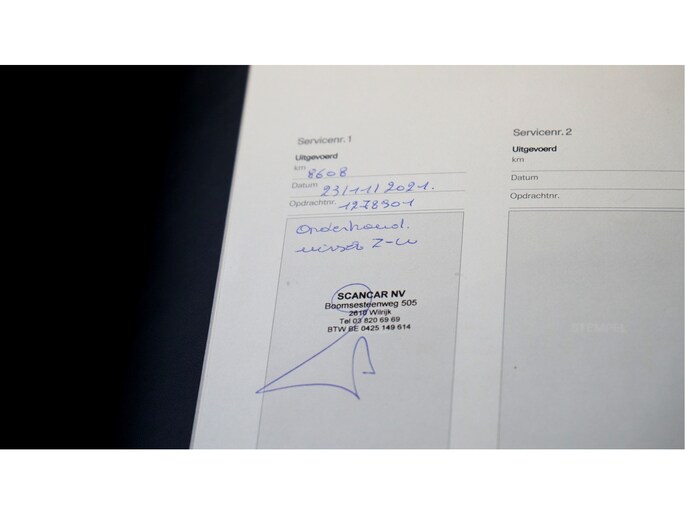 Servicenr. 1
Uitgevoerd
km 8608
Datum 23/11/2021.
Opdrachtnr. 1278901
Onderhoud.
Z-W
SCANCAR NV
Boomsesteenweg 505
2610 Wilrijk
Tel 03 820 69 69
BTW BE 0425 149 614
Servicenr. 2
Uitgevoerd
km
Datum
Opdrachtnr.